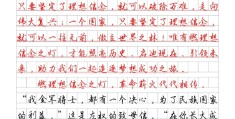 只要坚定了理想信念，就可以破除万难，走向
伟大复兴；一个国家，只要坚定了理想信念，
就可以一往无前，傲立世界之林！唯有燃理想
信念之灯，才能照亮历史，启迪现在，引领未
来，助力我们一起逐梦成功之旅。
燃理想信念之灯，革命薪火代代相传。
“我全军将士，都有一个决心，为了民族国家
的利益，”这是左权的致母信，“在你长大成